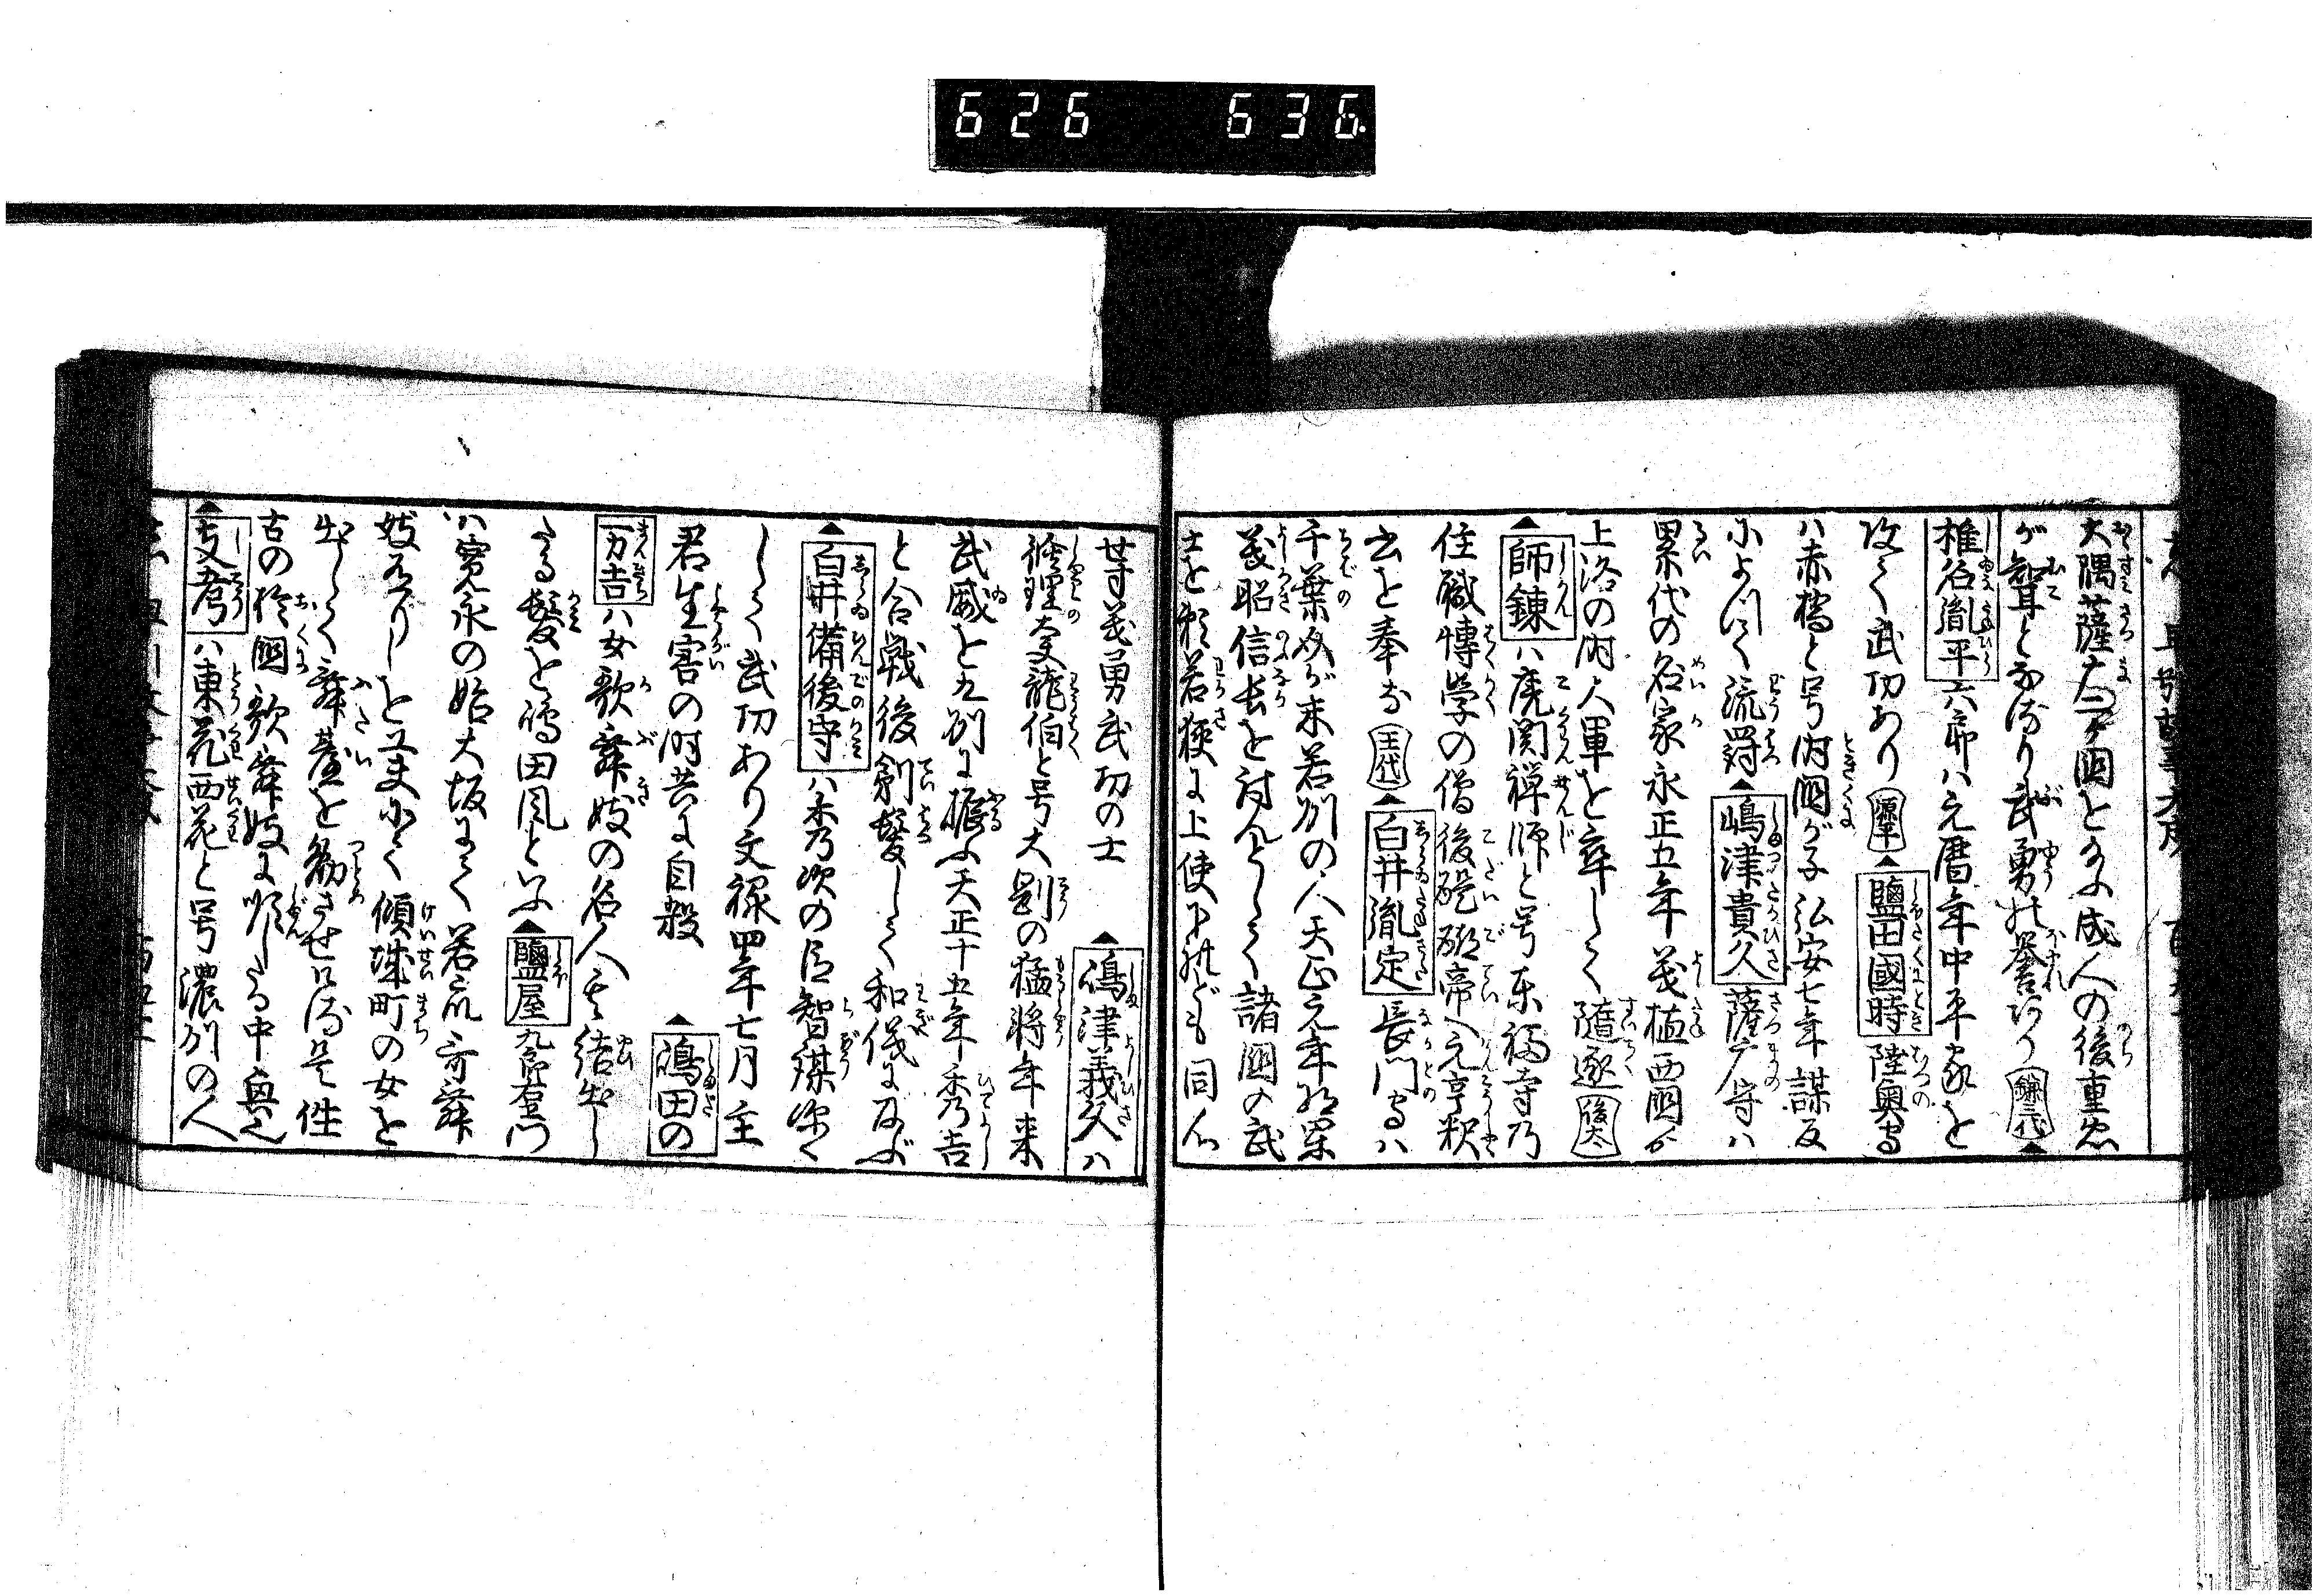 626 636
大隅薩广二ケ國とたまふ成人の後重忠
が聟となり武勇の誉あり 鎌三代 ▲
椎名胤平 六郎ハ元暦年中平家を
攻て武功あり 源平 ▲鹽田國時 陸奥守
ハ赤橋と号時國が子弘安七年謀反
により流罸▲嶋津貴久 薩广守ハ
累代の名家永正五年義植西國が
上洛の時人軍を率して随逐 後太
▲師錬ハ虎関禅師と号東福寺乃
住職博学の僧後醍醐帝へ元亨釈
書を奉る 王代 ▲白井胤定 長門守ハ
千葉が末若州の人天正元年将軍
義昭信長を討んとして諸國の武
士を若狭に上使下れども同心
甘ず義勇武功の士 ▲嶋津義久ハ
修理大夫龍伯と号大剛の猛将年来
武威を九州に振ふ天正十五年秀吉
と合戦後剃髪して和儀に及ぶ
▲白井備後守ハ秀次の臣智謀深く
して武功あり文禄四年七月主
君生害の時共に自殺 ▲嶋田の
万吉ハ女歌舞妓の名人其結出し
たる髪を嶋田風といふ▲鹽屋九郎右衛門
ハ寛永の始大坂にて若衆哥舞
妓ありしを又まにて傾城町の女を
出して舞臺を勤させける是往
古の於國歌舞妓に順したる中興也
▲支考ハ東花西花と号濃州の人